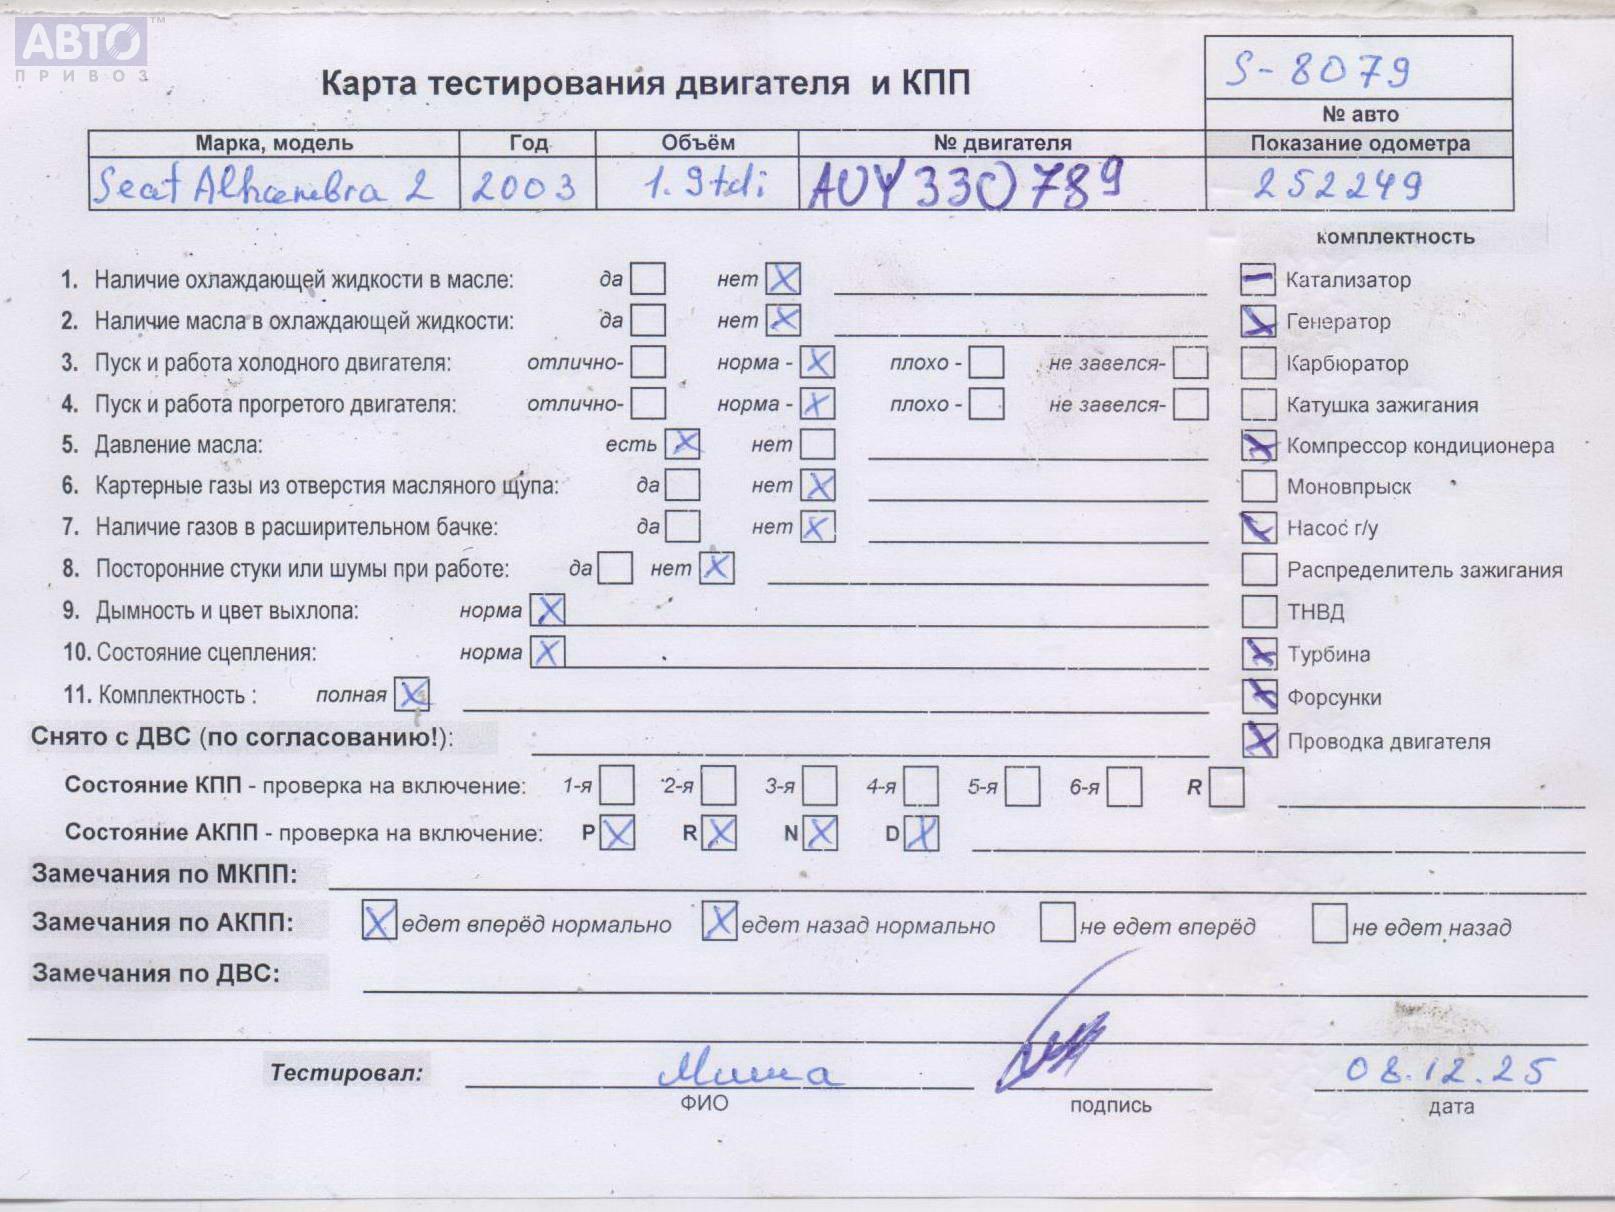 АВТО™
ПРИВОЗ
S-8079
Карта тестирования двигателя и КПП
№ авто
Марка, модель Год Объём № двигателя Показание одометра
Seat Alhambra 2 2003 1.9tdi AUY330789 252249
комплектность
1. Наличие охлаждающей жидкости в масле: да нет X — Катализатор
2. Наличие масла в охлаждающей жидкости: да нет X X Генератор
3. Пуск и работа холодного двигателя: отлично- норма - X плохо - не завелся- Карбюратор
4. Пуск и работа прогретого двигателя: отлично- норма - X плохо - не завелся- Катушка зажигания
5. Давление масла: есть X нет X Компрессор кондиционера
6. Картерные газы из отверстия масляного щупа: да нет X Моновпрыск
7. Наличие газов в расширительном бачке: да нет X X Насос г/у
8. Посторонние стуки или шумы при работе: да нет X Распределитель зажигания
9. Дымность и цвет выхлопа: норма X ТНВД
10. Состояние сцепления: норма X X Турбина
11. Комплектность : полная X X Форсунки
Снято с ДВС (по согласованию!): X Проводка двигателя
Состояние КПП - проверка на включение: 1-я 2-я 3-я 4-я 5-я 6-я R
Состояние АКПП - проверка на включение: P X R X N X D X
Замечания по МКПП:
Замечания по АКПП: X едет вперёд нормально X едет назад нормально не едет вперёд не едет назад
Замечания по ДВС:
Тестировал: Миша 08.12.25
ФИО подпись дата